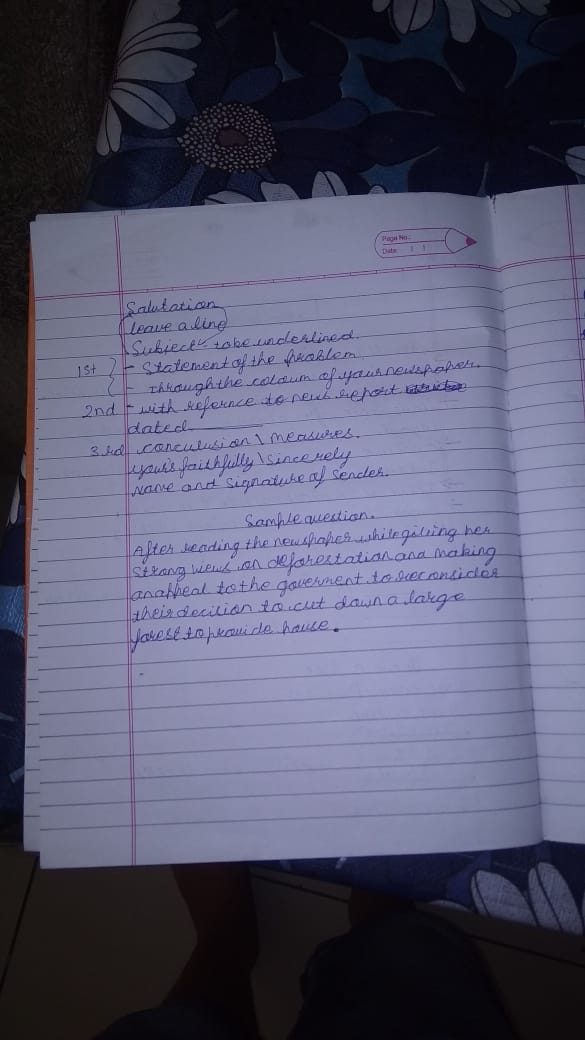 Page No.:
Date:
Salutation
leave a line
Subject - to be underlined.
1st - Statement of the problem
- Through the coloum of your newspaper.
2nd - with refernce to news report
dated
3rd conculusion \ measures.
your's faithfully \ sincerely
Name and signature of Sender.
Sample question.
After reading the newspaper while giving her
strong views on deforestation and making
an appeal to the goverment to reconsider
their decision to cut down a large
forest to provide house.